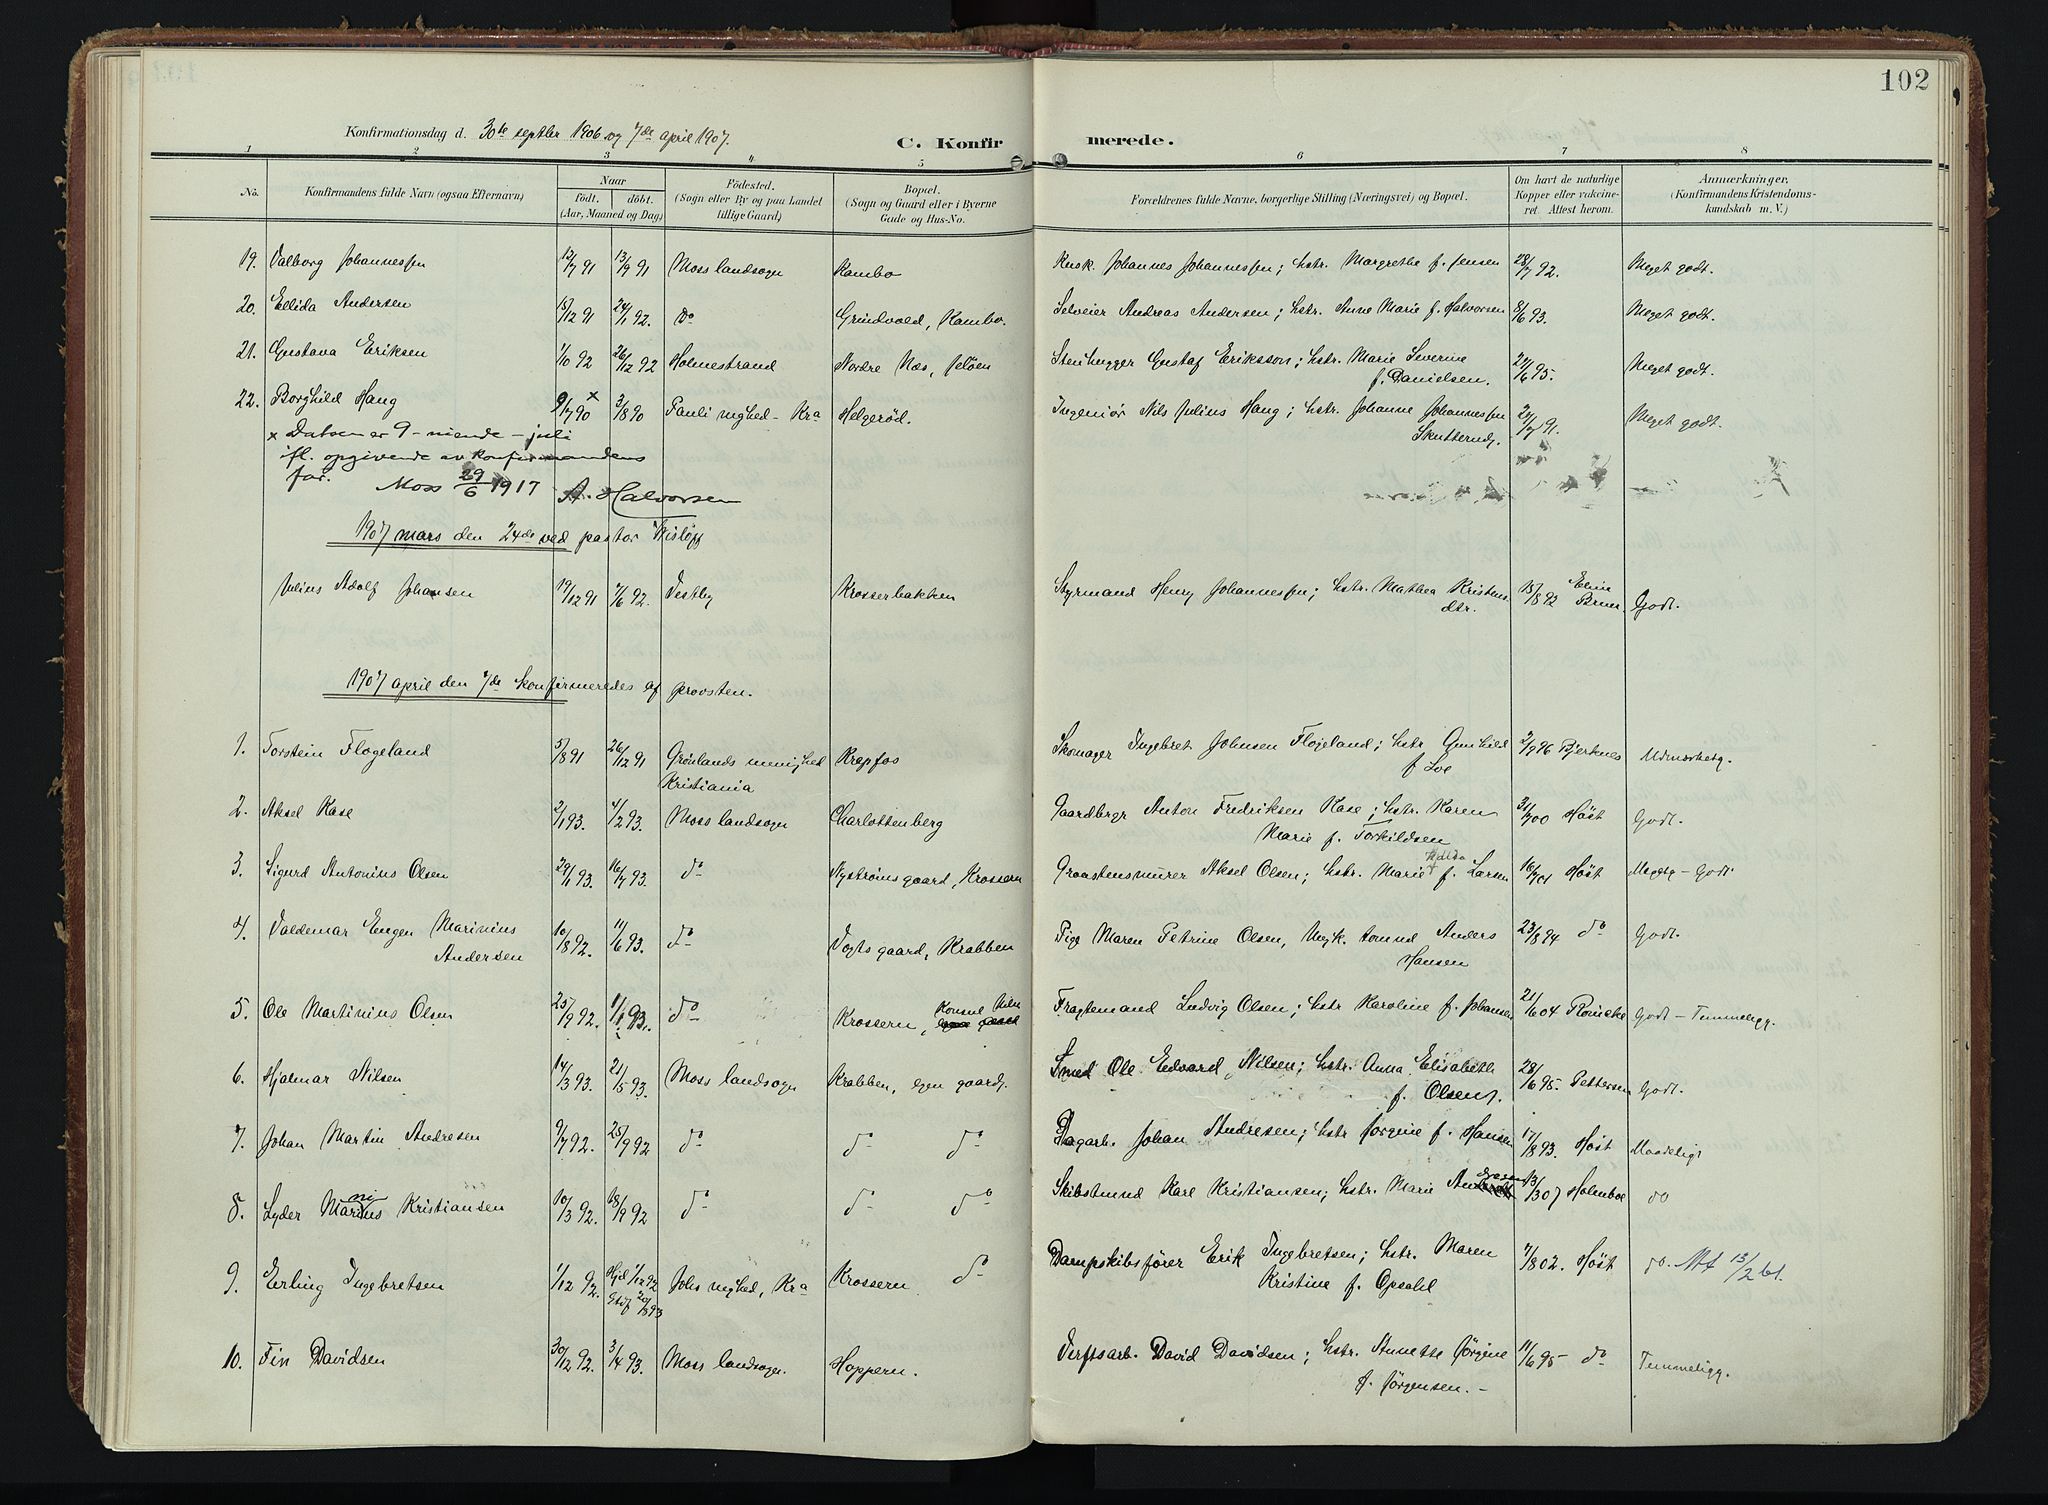 102
Konfirmationsdag d. 30te septbr 1906 og 7de april 1907.
C. Konfirmerede.
1 2 3 4 5 6 7 8
No. Konfirmandens fulde Navn (ogsaa Efternavn) Naar födt. döbt. (Aar, Maaned og Dag) Födested. (Sogn eller By og paa Landet tillige Gaard) Bopæl. (Sogn og Gaard eller i Byerne Gade og Hus-No. Forældrenes fulde Navne, borgerlige Stilling (Næringsvei) og Bopæl. Om havt de naturlige Kopper eller vakcineret. Attest herom. Anmærkninger. (Konfirmandens Kristendomskundskab m. V.)
19. Valborg Johannessen 12/7 91 13/9 91 Moss landsogn Kambo Kusk Johannes Johannessen; hstr. Margrethe f. Jensen 28/7 92. Meget godt.
20. Ellida Andersen 15/12 91 24/1 92. do Grindvold, Kambo. Selveier Andreas Andersen; hstr. Anne Marie f. Halvorsen 8/6 93. Meget godt.
21. Gustava Eriksen 1/10 92 26/12 92 Holmestrand Nordre Næs, Jeløen Stenhugger Gustaf Eriksson; hstr. Marie Severine
f. Danielsen. 22/6 95. Meget godt.
22. Borghild Haug 9/7 90 x 3/8 90 Pauli mghed - Kra Helgerød. Ingeniør Nils Julius Haug; hstr. Johanne Johannessen
Skutterud. 22/7 91. Meget godt.
x Datoen er 9 - niende - juli
fl. opgivende av konfirmandens
far. Moss 29/6 1917 A. Halvorsen
1907 mars den 24de ved pastor Wisløff
Julius Adolf Johansen 19/12 91 7/6 92. Vestby Krosserbakken Styrmand Henry Johannessen; hstr. Mathea Kristens
dtr. 15/8 92 Brun. Godt.
1907 april den 7de konfirmeredes af provsten.
1. Torstein Flogeland 5/8 91 26/12 91 Grønlands menighed
Kristiania Krapfos Skomager Ingebret Johnsen Flogeland; hstr. Gunhild
f. Loe 2/7 96 Bjerknes Udmerket.
2. Aksel Kase 2/1 93. 4/2 93. Moss landsogn Charlottenberg Gaardbrgr Anton Fredriksen Kase; hstr. Karen
Marie f. Torkildsen 31/7 00 Höst Godt.
3. Sigurd Antonius Olsen 29/1 93. 16/7 93. do Nystrømsgaard, Krossern Graastensmurer Aksel Olsen; hstr. Marie f. Larsen 16/7 01 Höst Meget - Godt
4. Valdemar Eugen Marinius
Andersen 10/8 92. 11/6 93. do Vogtsgaard, Krabben Pige Maren Petrine Olsen, Ungk. tømmd Anders
Hansen 23/8 94 do Godt.
5. Ole Martinius Olsen 25/9 92. 1/1 93. do Krossern, Fragtemand Ludvig Olsen; hstr Karoline f. Johansen 21/6 04 Godt - Temmelig.
6. Hjalmar Nilsen 14/3 93. 21/5 93. Moss landsogn Krabben, egen gaard. Smed Ole Edvard Nilsen; hstr. Anna Elisabeth
f. Olsen. 28/6 95. Pettersen Godt.
7. Johan Martin Andresen 9/7 92. 25/9 92 do do do Dagarb. Johan Andresen; hstr Jørgine f. Hansen 17/8 93. Höst Maadeligt
8. Lyder Marinius Kristiansen 10/3 92. 18/9 92 do do do Skibstmnd Karl Kristiansen; hstr. Marie Andresen 13/3 07 Holmboe do
9. Erling Ingebretsen 1/12 92. Hjd 1/12 92
Stdf 20/3 93 Johs mghed, Kra Krossern do Dampskibsfører Erik Ingebretsen; hstr. Maren
Kristine f. Opsahl 7/8 02. Höst do. Att 13/2 61.
10. Fin Davidsen 30/12 92. 3/4 93. Moss landsogn. Hoppern. Verftsarb. David Davidsen; hstr. Annette Jørgine
f. Jørgensen. - 11/6 95 do Temmelig.